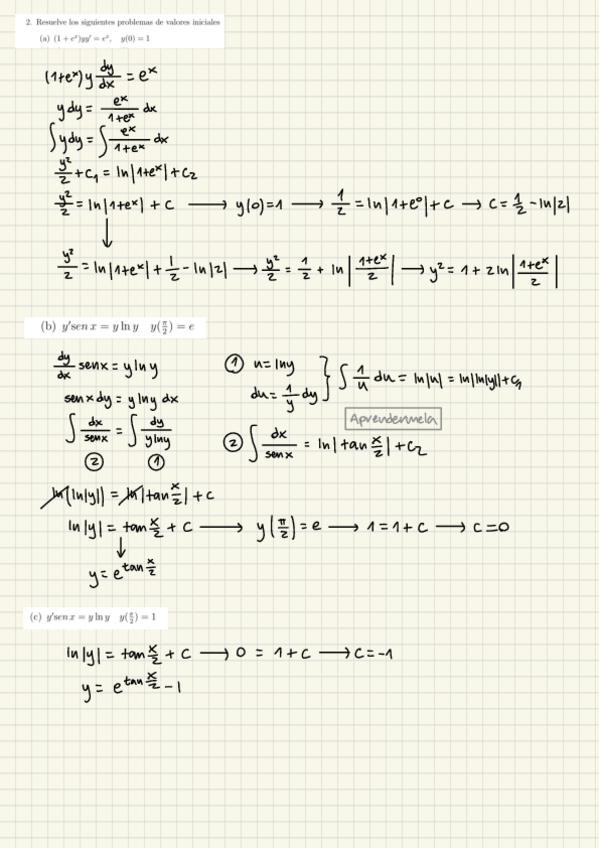 2. Resuelve los siguientes problemas de valores iniciales
(a) (1 + eˣ)yy' = eˣ, y(0) = 1
(1+eˣ) y dy/dx = eˣ
y dy = eˣ/(1+eˣ) dx
∫ y dy = ∫ eˣ/(1+eˣ) dx
y²/2 + C₁ = ln|1+eˣ| + C₂
y²/2 = ln|1+eˣ| + C → y(0)=1 → 1/2 = ln|1+e⁰| + C → C = 1/2 - ln|2|
↓
y²/2 = ln|1+eˣ| + 1/2 - ln|2| → y²/2 = 1/2 + ln|(1+eˣ)/2| → y² = 1 + 2 ln|(1+eˣ)/2|
(b) y'sen x = y ln y y(π/2) = e
dy/dx senx = y ln y
senx dy = y ln y dx
∫ dx/senx = ∫ dy/(y ln y)
② ①
① u = ln y
du = 1/y dy } ∫ 1/u du = ln|u| = ln|ln|y|| + C₁
Aprendermela
② ∫ dx/senx = ln|tan x/2| + C₂
ln|ln|y|| = ln|tan x/2| + C
ln|y| = tan x/2 + C → y(π/2) = e → 1 = 1 + C → C = 0
↓
y = e^(tan x/2)
(c) y'sen x = y ln y y(π/2) = 1
ln|y| = tan x/2 + C → 0 = 1 + C → C = -1
y = e^(tan x/2 - 1)